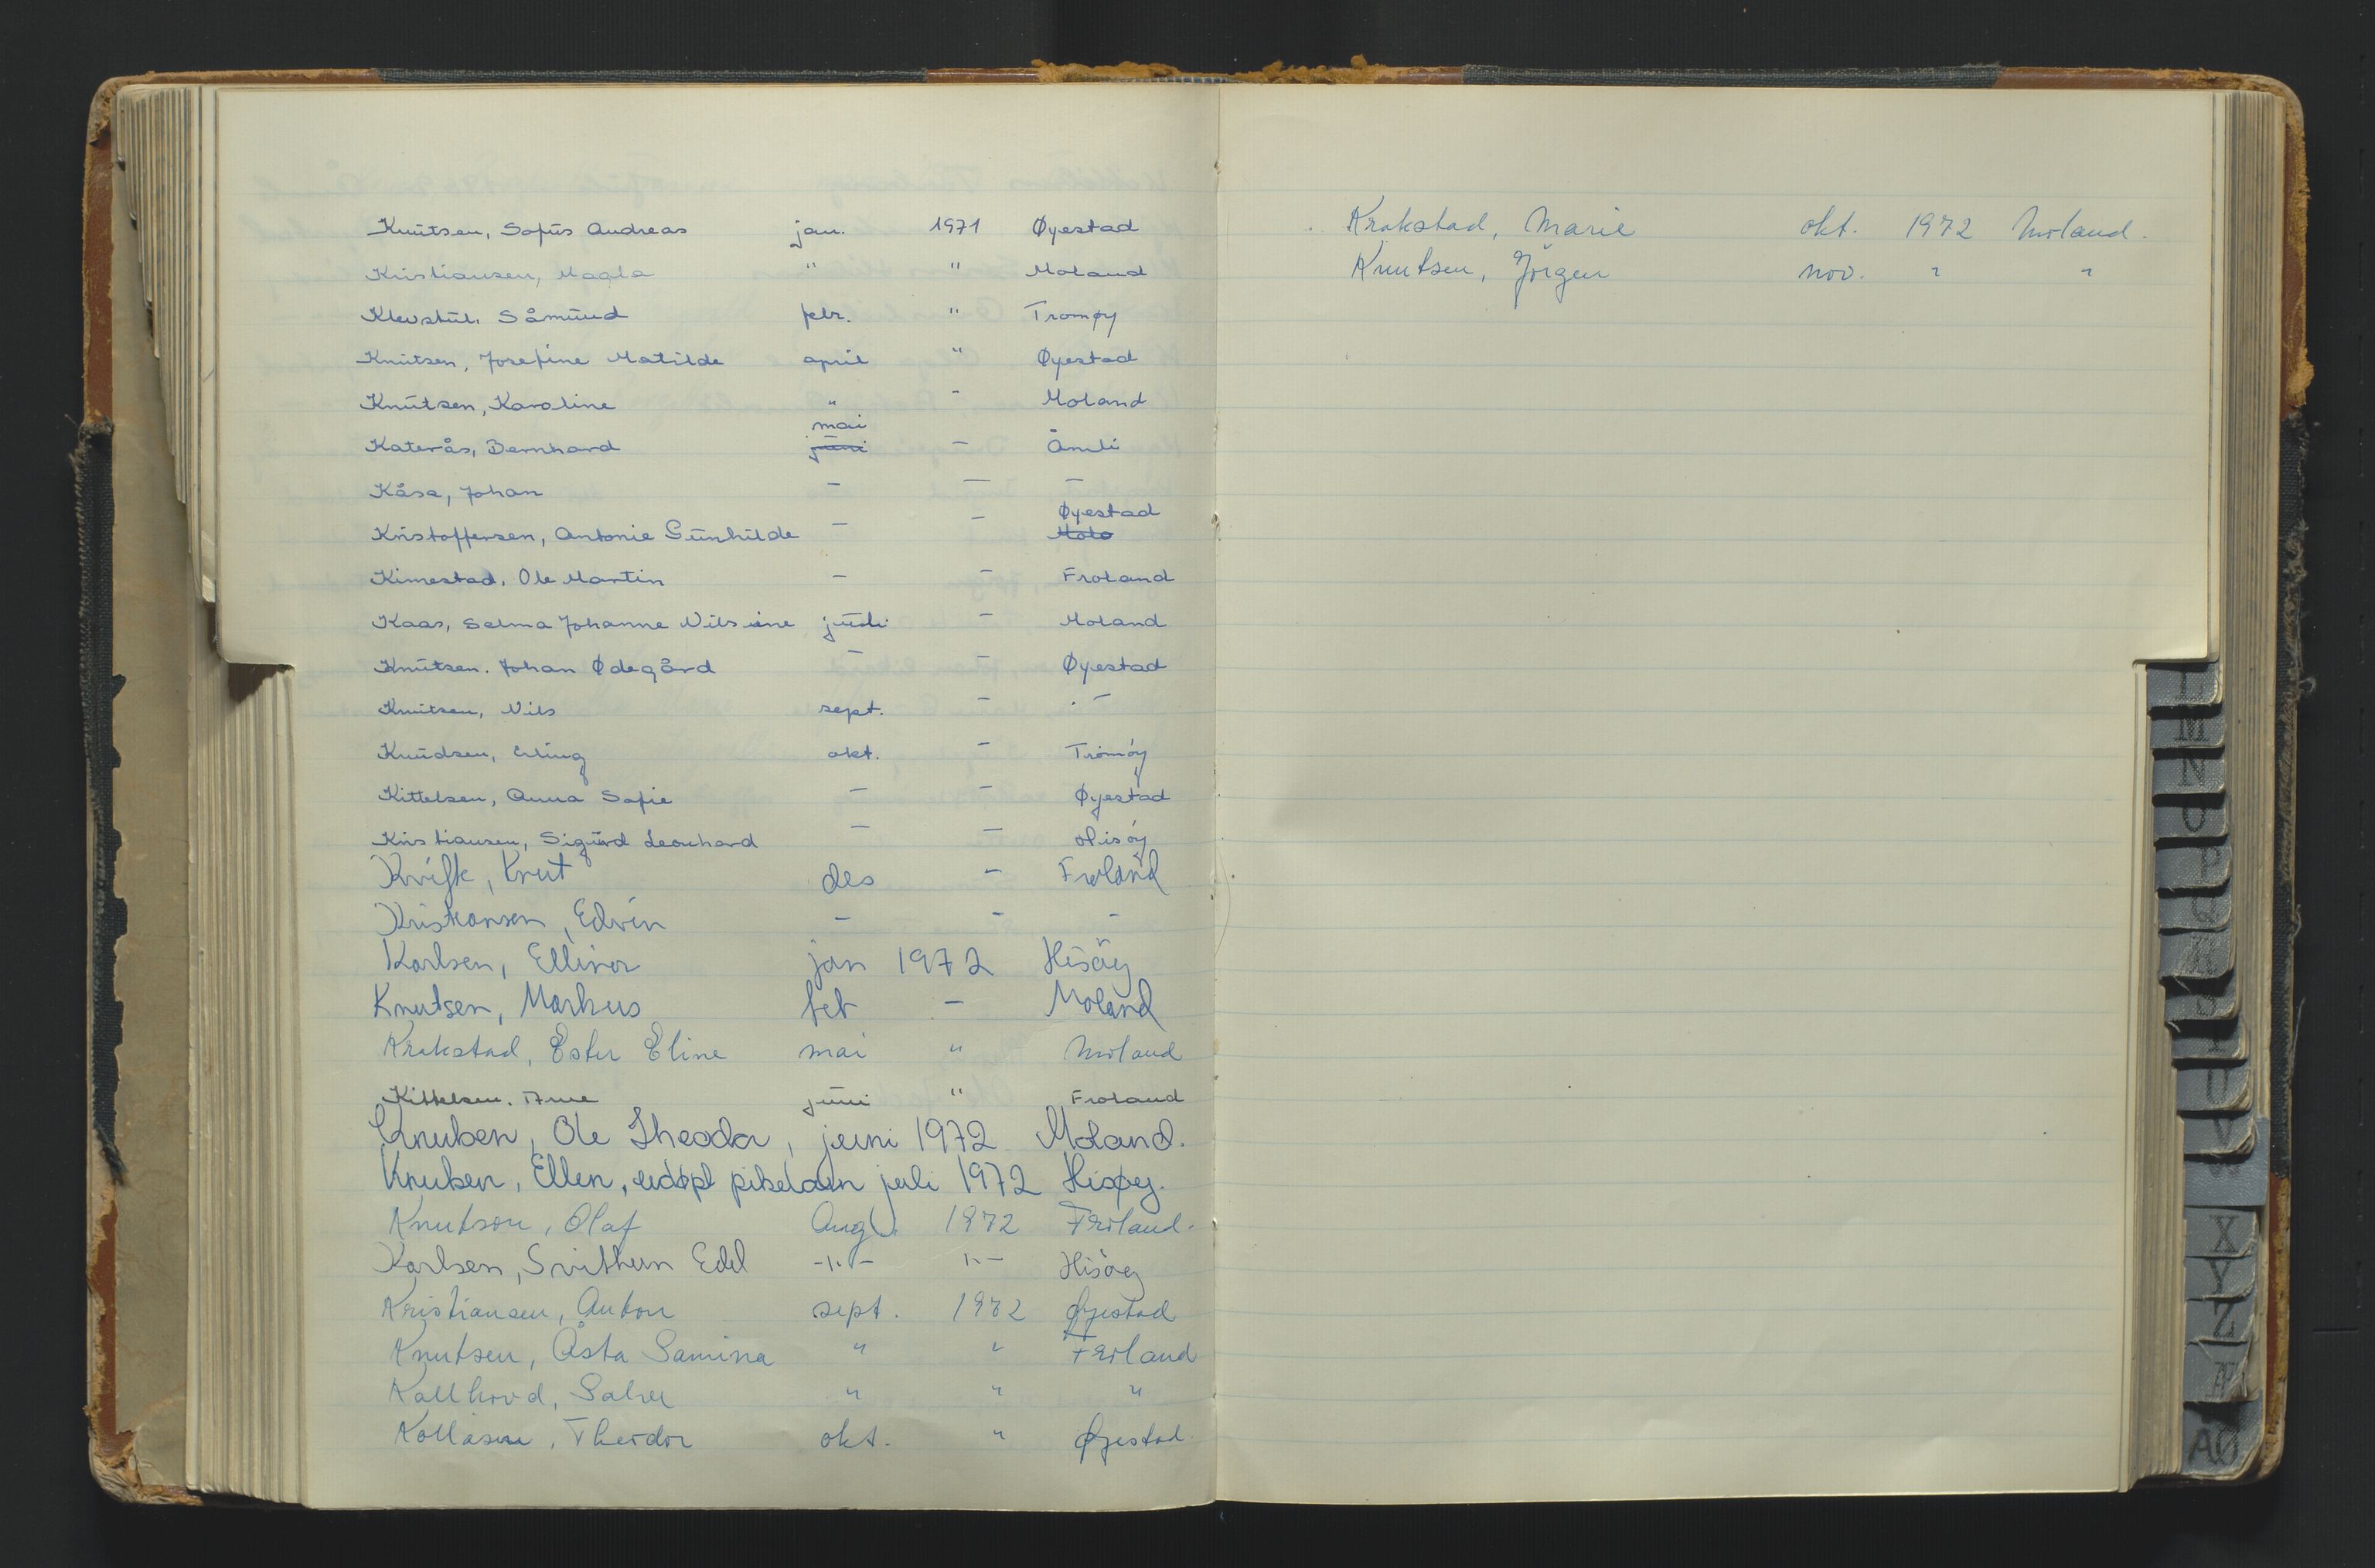 Knutsen, Sofus Andreas jan. 1971 Øyestad
Kristiansen, Magda " " Moland
Klevstul, Såmund febr. " Tromøy
Knutsen, Josefine Matilde april " Øyestad
Knutsen, Karoline " - Moland
mai
Katerås, Bernhard juni - Åmli
Kåsa, Johan - - -
Øyestad
Kristoffersen, Antonie Gunhilde - - Molo
Kimestad, Ole Martin - - Froland
Kaas, Selma Johanne Nilsine juli - Moland
Knutsen. Johan Ødegård - - Øyestad
Knutsen, Nils sept. - -
Knudsen, Erling okt. - Tromöy
Kittelsen, Anna Sofie - - Øyestad
Kristiansen, Sigurd Leonhard - - Hisöy
Kvifte, Knut des - Froland
Kristiansen, Edvin - - -
Karlsen, Ellinor jan 1972 Hisöy
Knutsen, Markus feb - Moland
Krakstad, Ester Eline mai " Moland
Kittelsen. Anne juni " Froland
Knutsen, Ole Theodor, juni 1972 Moland.
Knutsen, Ellen, udøpt pikebarn juli 1972 Hisøy.
Knutson, Olaf Aug. 1972 Froland.
Karlsen, Svithun Edel -"- "- Hisöy
Kristiansen, Anton sept. 1972 Øyestad
Knutsen, Åsta Samina " " Froland
Kallhovd, Salve " " "
Theodor okt. " Øyestad
Krakstad, Marie okt. 1972 Moland.
Knutsen, Jörgen nov. " "
L
M
N
O
P
Q
R
S
T
U
V
W
X
Y
Z
Æ
AØ